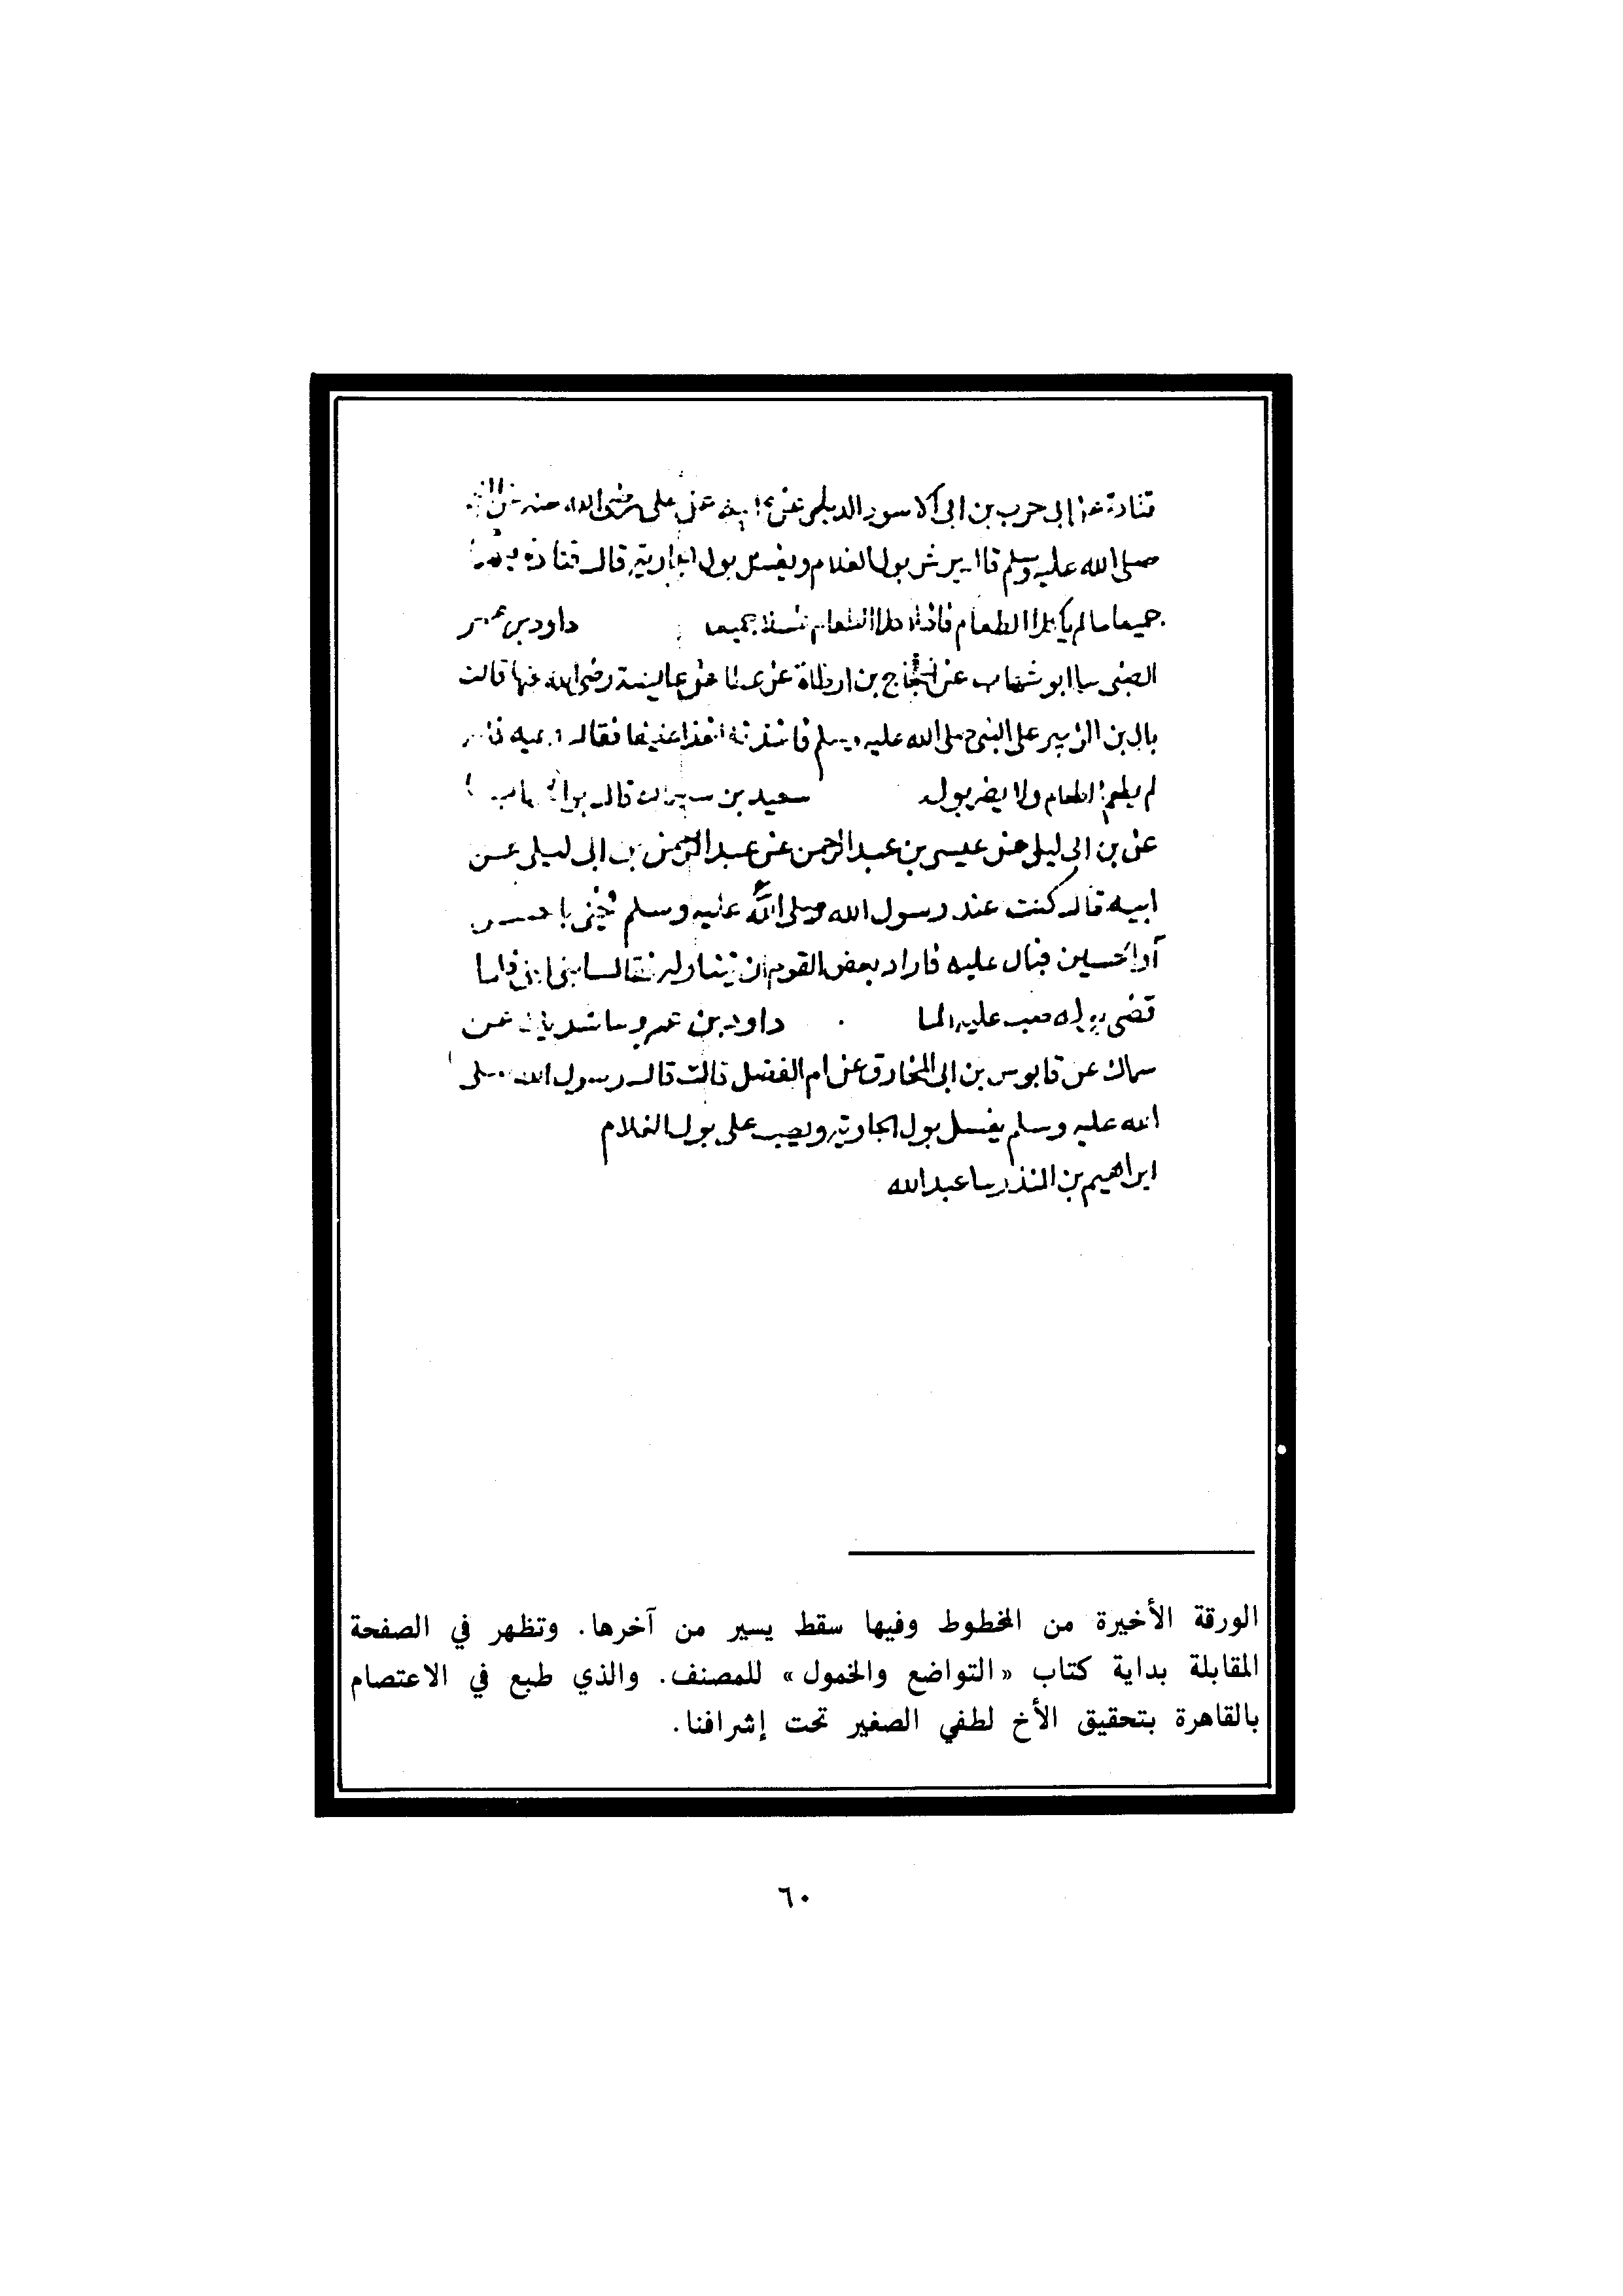 قتادة عن ابى حرب بن ابى الاسود الديلمى عن ابيه عن على رضى الله عنه عن
صلى الله عليه وسلم قال يرش بول الغلام ويغسل بول الجارية قال قتادة
جميعا ما لم ياكلا الطعام فاذا اكلا الطعام غسلا جميعا داود بن عمر
الضبى سا ابو شهاب عن الحجاج بن ارطاة عن عطا عن عايشة رضى الله عنها قالت
بال بن الزبير على النبى صلى الله عليه وسلم فاخذته اخذا عنيفا فقال
لم يطعم الطعام ولا يضر بوله سعيد بن سليمان قال
عن بن ابى ليلى عن عيسى بن عبد الرحمن عن عبد الرحمن بن ابى ليلى عن
ابيه قال كنت عند رسول الله صلى الله عليه وسلم فجئ با حسن
او احسين فبال عليه فاراد بعض القوم ان يتناوله فقال ابنى ابنى فلما
قضى بوله صب عليه الما داود بن عمرو سا شريك عن
سماك عن قابوس بن ابى المخارق عن ام الفضل قالت قال رسول الله صلى
الله عليه وسلم يغسل بول الجارية ويصب على بول الغلام
ابراهيم بن المنذر سا عبد الله
الورقة الأخيرة من المخطوط وفيها سقط يسير من آخرها. وتظهر في الصفحة
المقابلة بداية كتاب «التواضع والخمول» للمصنف. والذي طبع في الاعتصام
بالقاهرة بتحقيق الأخ لطفي الصغير تحت إشرافنا.
٦٠